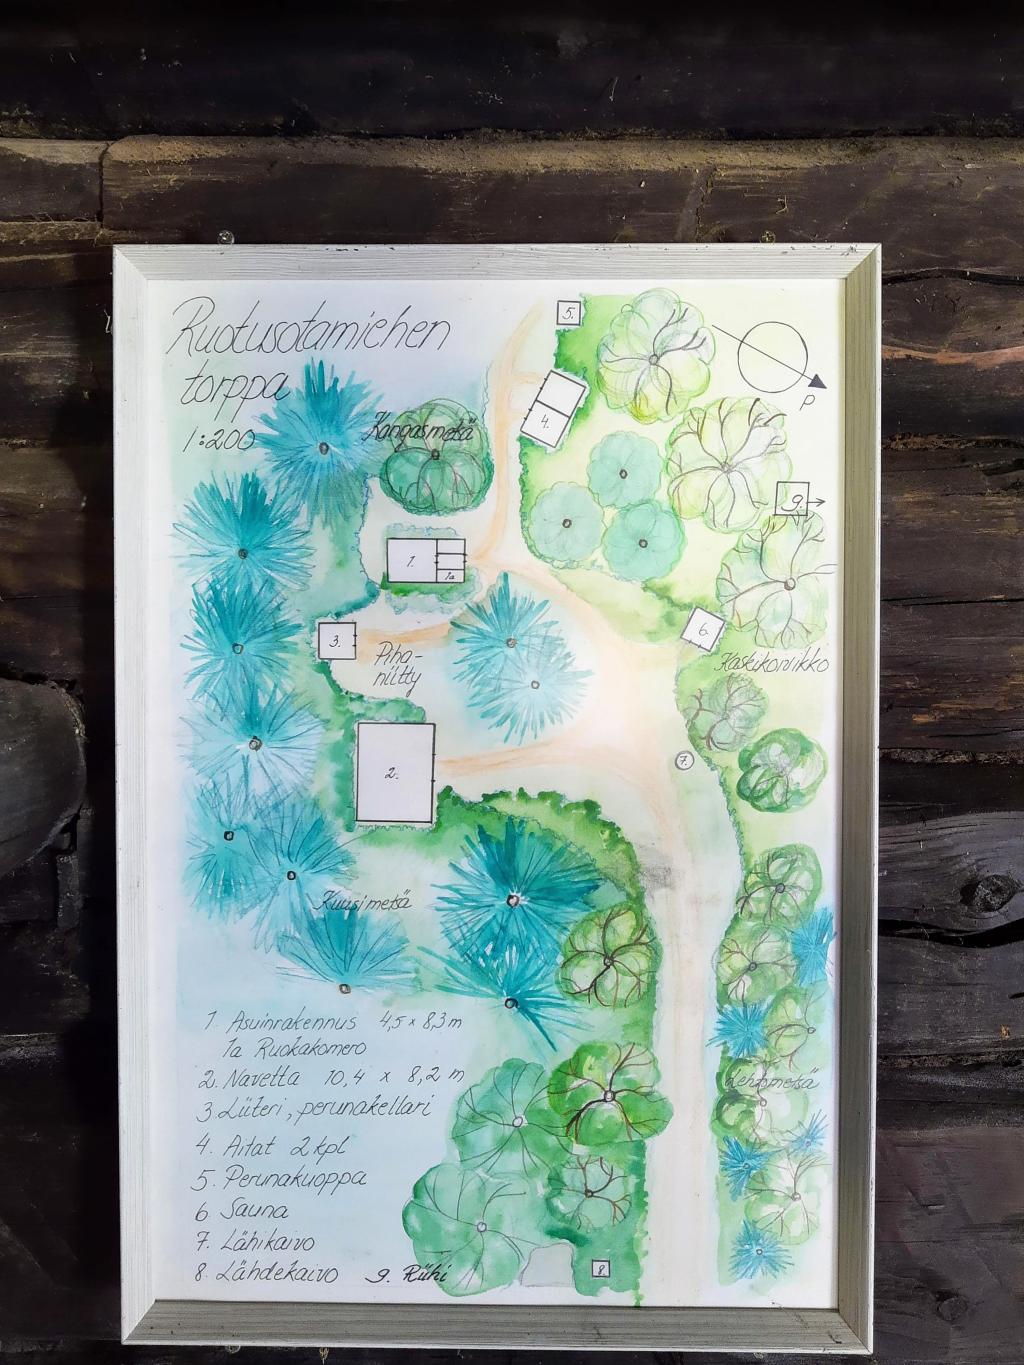 Ruotusotamiehen
torppa
1:200
5.
4.
P
Kangasmetsä
9.
1.
1a
3.
6.
Piha-
niitty
Kaskikoivikko
2.
7.
Kuusimetsä
Lehtimetsä
1. Asuinrakennus 4,5 x 8,3 m
1a Ruokakomero
2. Navetta 10,4 x 8,2 m
3. Liiteri, perunakellari
4. Aitat 2 kpl
5. Perunakuoppa
6. Sauna
7. Lähikaivo
8. Lähdekaivo 9. Riihi
8